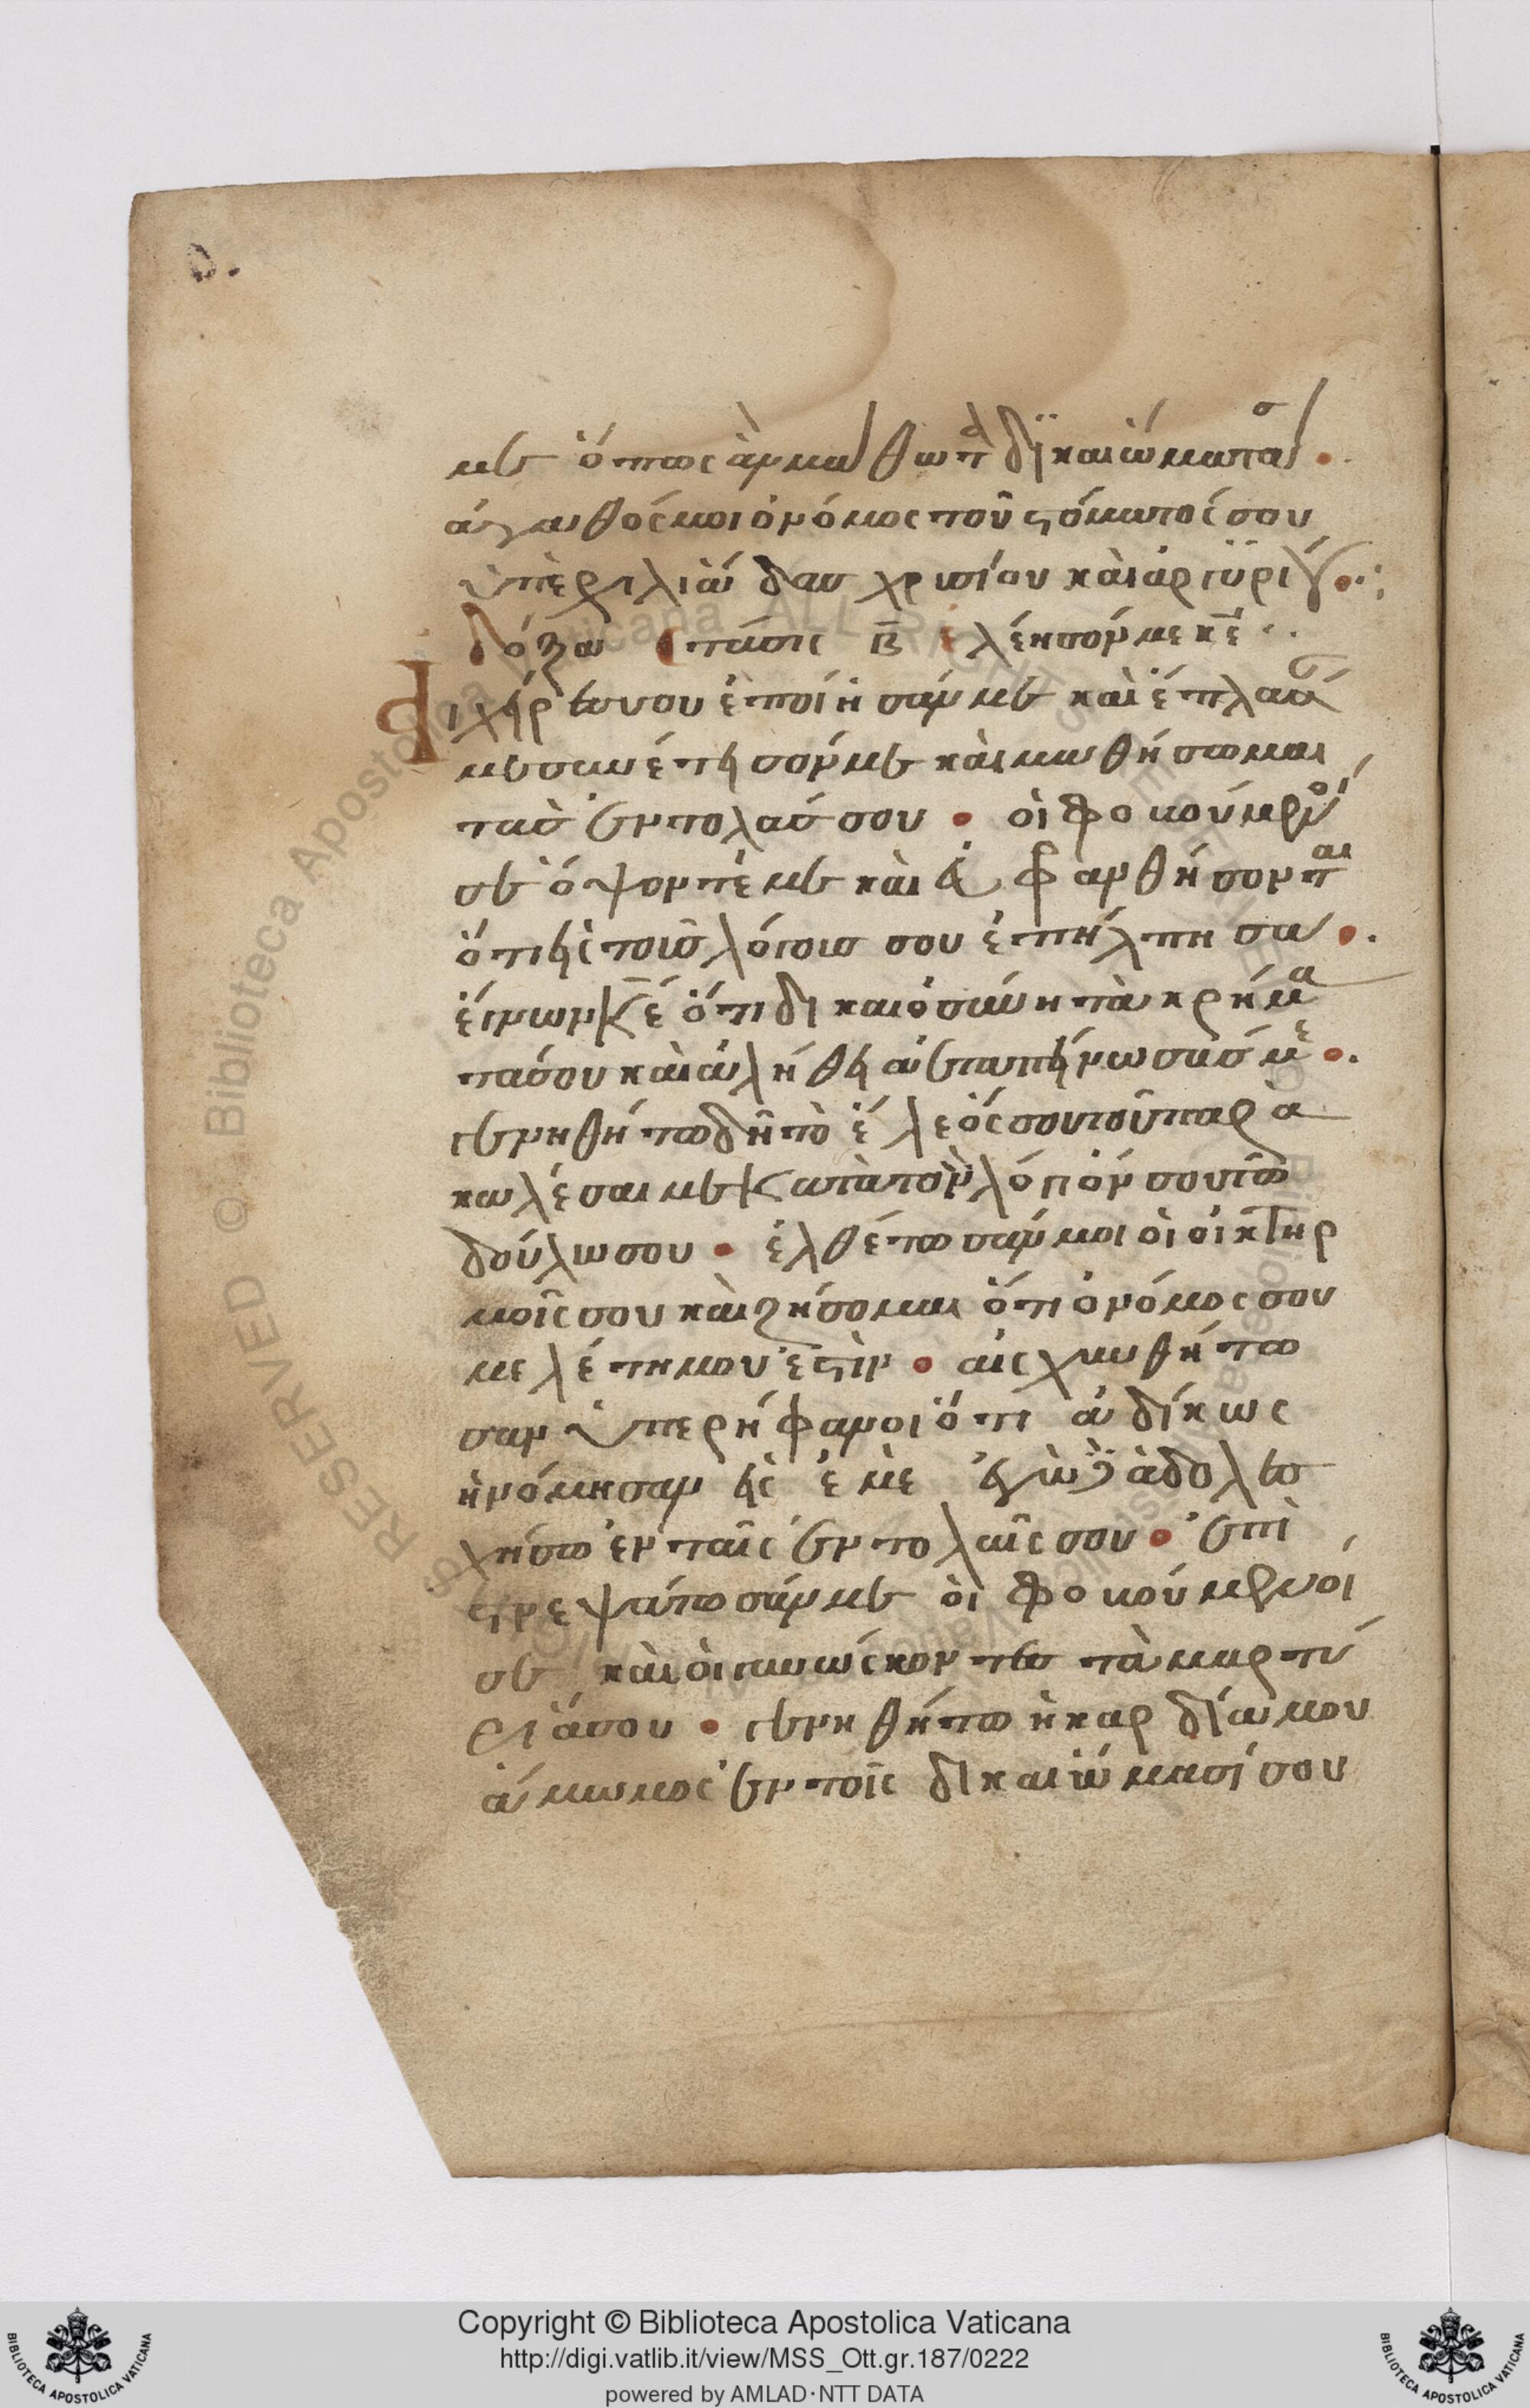 με ὅπως ἂν μάθω τὰ δϊκαιώματά σ
ἀγαθός μοι ὁ νόμος τοῦ στόματός σου
ὑπὲρ χιλιάδας χρισίου καὶ ἀργϋρίου
δόξα στάσις β ἐλέησόν με κε
Αι χεῖρες σου ἐποίησάν με καὶ ἔπλασάν
με συνέτησόν με καὶ μαθήσωμαι
τὰς ἐντολάς σου • οἱ φοβούμενοί
σε ὄψονταί με καὶ εὐφρανθήσονται
ὅτι εἰς τοὺς λόγους σου ἐπήλπησα •
ἔγνων κε ὅτι δικαιοσύνη τὰ κρήμα
τά σου καὶ ἀληθεία ἐταπείνωσάς με •
γενηθήτω δὴ τὸ ἔλεός σου τοῦ παρα
καλέσαι με κατὰ τὸν λόγιόν σου τῶ
δούλω σου • ἐλθέτωσάν μοι οἱ οἰκτηρ
μοῖς σου καὶ ζήσομαι ὅτι ὁ νόμος σου
μελέτη μου ἐστὶν • αἰσχυνθήτω
σαν ὑπερήφανοι ὅτι ἀδίκως
ἠνόμησαν εἰς ἐμὲ ἐγὼ δὲ ἀδολε
χήσω ἐν ταῖς ἐντολαῖς σου • ἐπι
στρεψάτωσάν με οἱ φοβούμενοί
σε καὶ οἱ γινώσκοντες τὰ μαρτύ
ριά σου • γενηθήτω ἡ καρδία μου
ἄμωμος ἐν τοῖς δικαιώμασί σου
RESERVED © Biblioteca Apostolica Vaticana ALL RIGHTS RESERVED
Copyright © Biblioteca Apostolica Vaticana
http://digi.vatlib.it/view/MSS_Ott.gr.187/0222
powered by AMLAD·NTT DATA
BIBLIOTECA APOSTOLICA VATICANA
BIBLIOTECA APOSTOLICA VATICANA